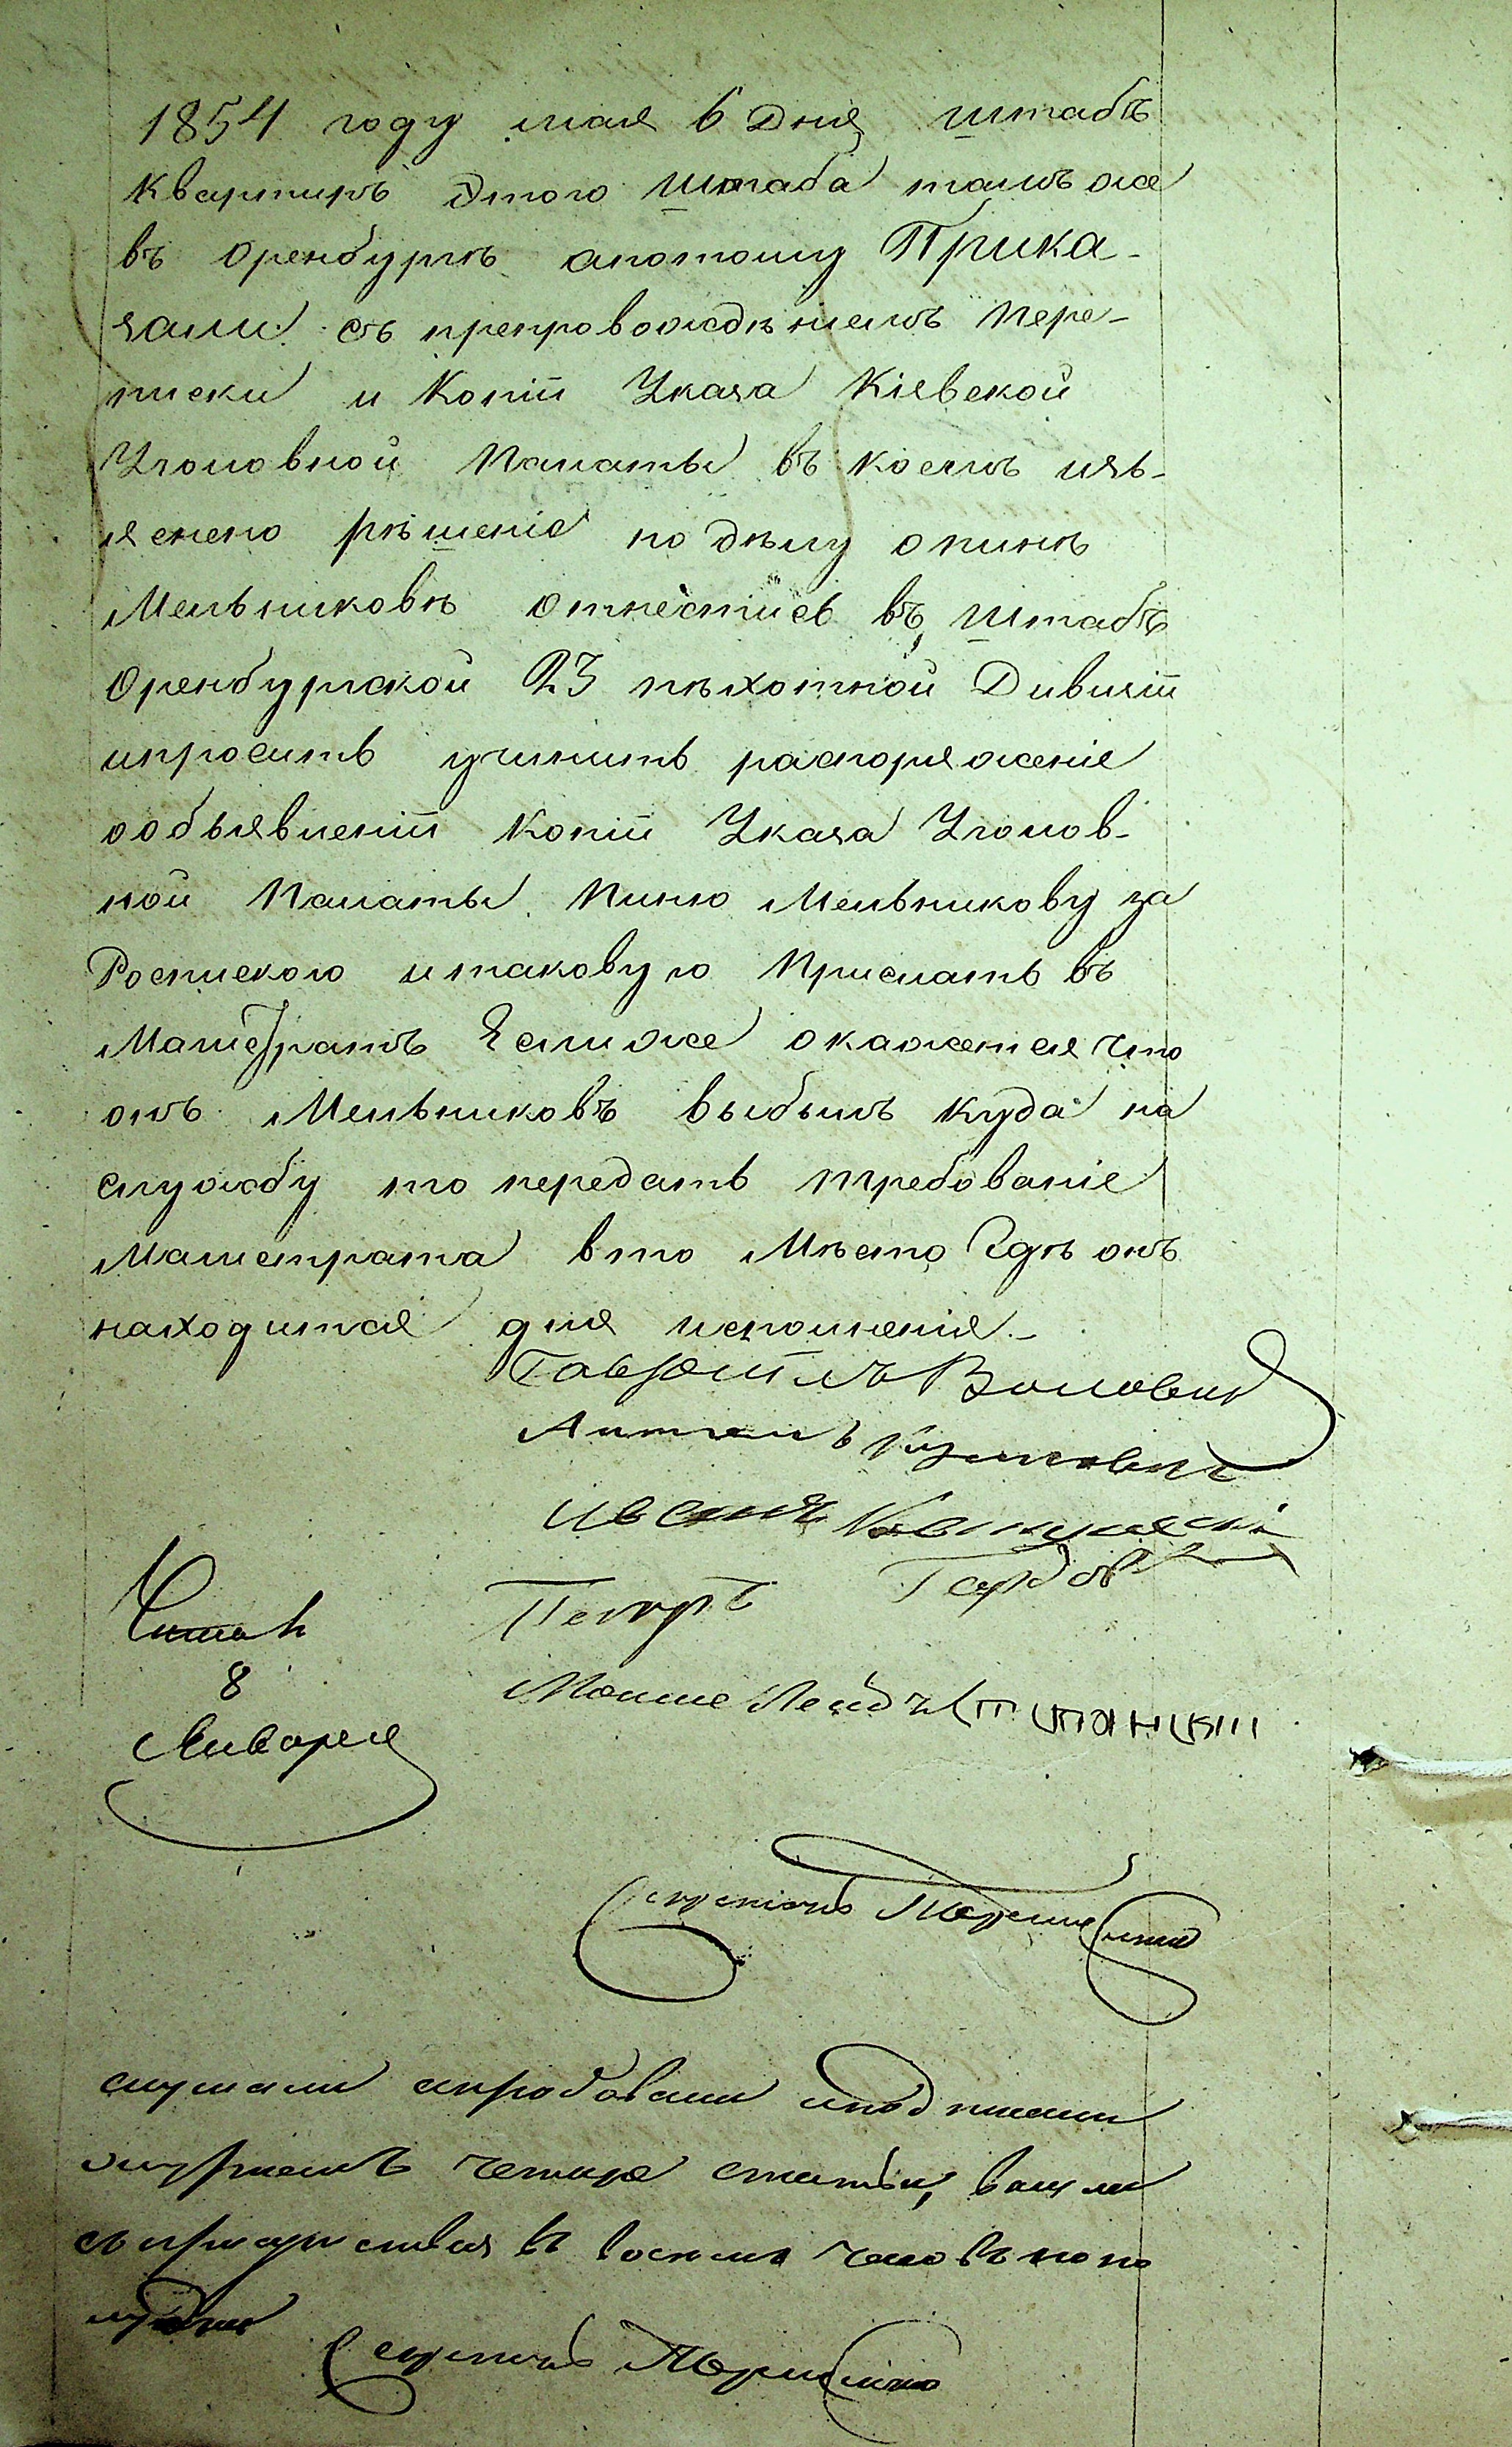 1854 году мая 6 дня штабъ
Квартиръ Этого Штаба тамъ же
въ Оренбургѣ апотому Прика-
зали: съ препровождѣниемъ Пере-
писки и Копіи Указа Кіевской
Уголовной Палаты въ коемъ изъ-
яснено рѣшеніе по дѣлу опинѣ
Мельниковѣ отнестись въ Штабъ
Оренбургской 23 пѣхотной Дивизіи
ипросить учинить распоряженіе
ообъявленіи Копіи Указа Уголов-
ной Палаты Пиню Мельникову за
Роспискою итаковую Прислать въ
Магистратъ Если же окажется что
онъ Мельниковъ выбылъ куда на
службу то передать требованіе
Магистрата вто Мѣсто Гдѣ онъ
находится для исполненія.-
Гавріилъ
Антонъ
Иванъ
Петръ
Читалъ
8
Января
Мошке
Секретарь
слушали иподписали
четыре статьи, вышли
съ присутствія въ часовъ попо
лудни
Секретарь